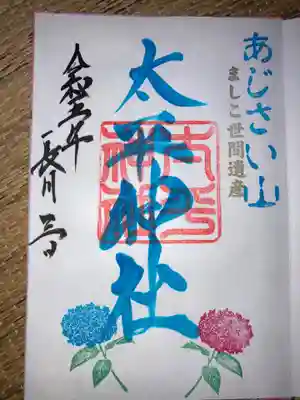 あじさい山
ましこ世間遺産
太平神社
太平神社
令和五年